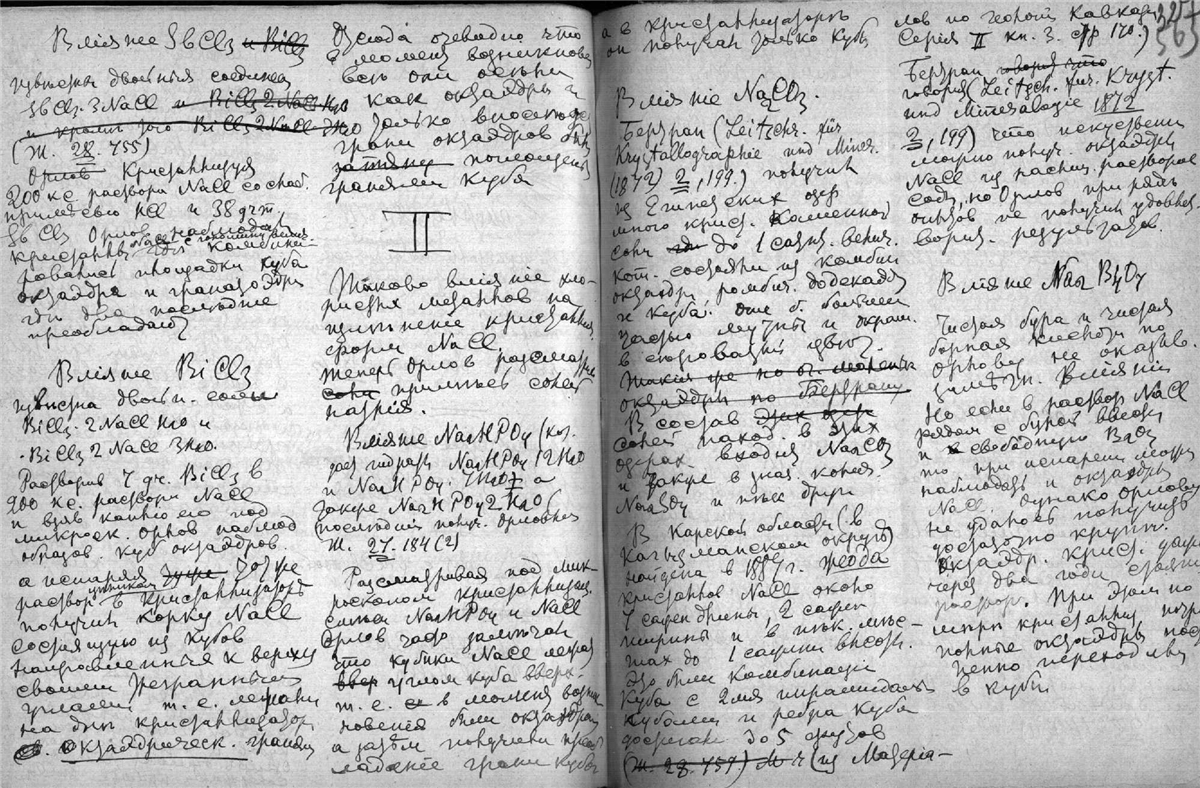 Влiянiе SbCl3 и BiCl3
извѣстны двойныя соединен
SbCl3·3NaCl и BiCl3 2NaCl H2O
и кромѣ того BiCl3 2NaCl 3H2O
(Ж. 28. 455)
Орлов Кристаллизуя
200 кс. раствора NaCl со слаб.
примѣсью HCl и 38 дгт.
SbCl3 Орлов наблюдал
кристаллы NaCl
гдѣ комбини-
ровались площадки куба
октаэдра и
гдѣ два последние
преобладают
Влiянiе BiCl3
извѣстна двойн. соли
BiCl3·2NaCl H2O и
·BiCl3 2NaCl 3H2O.
Растворив 4 дг. BiCl3 в
200 кс. раствора NaCl
и взяв каплю его под
микроск. Орлов наблюд
образов. куб октаэдров.
а испаряя
раствор в кристаллизаторѣ
получил корку NaCl
состоящую из кубов
направленных к верху
своими
углами т.е. лежали
на днѣ кристаллизатор
октаэдрическ. гранями
Отсюда очевидно что
в момент возникнове
всѣ они были
как октаэдры и
только впоследс
грани октаэдров
затянул поглощены
гранями куба
II
Таково влiянiе хло-
ристых металлов на
измѣненiе кристаллич.
форм NaCl.
теперь Орлов рассматрив
соли примѣсь солей
натрiя.
Влiянiе Na2HPO4 (кот.
дает гидраты Na2HPO4 12H2O
и Na2HPO4·7H2O а
также Na2HPO4 2H2O (
последний получ. Орловым
Ж. 27. 184 (2)
Рассматривая под мик-
роскопом кристаллизац.
смеси Na2HPO4 и NaCl
Орлов часто замечал
что кубики NaCl лежат
ввер углом куба вверх
т.е. в момент возни
кновенiя были октаэдрам
а затем получили преоб
ладанiе грани куба
а в кристаллизаторѣ
он получал только кубы
Влiянiе Na2CO3.
Бертран (Zeitschr. für
Krystallographie und Miner.
(1872) 2, 199) получил
из Египетских озер
много крист. каменной
соли до 1 сант. велич.
кот. состояли из комбин
октаэдра, ромбич. додекаэд
и куба. Они б. большей
частью мутны и окраш.
в цвет.
октаэдры по Бертрану
В состав
солей наход. в этих
озерах входил Na2CO3
и также в знач. колич.
Na2SO4 и друг
В Карской области (в
Кагызманском округѣ)
найдена в 188 г. жеода
кристаллов NaCl около
сажен длины, 2 сажен
ширины и в нѣк. мѣс-
тах до 1 сажени высот.
Это были комбинацiи
куба с 2мя пирамидальн
кубами и ребра куба
достигали до 5 футов
(Ж. 28. 459) (из Матерiа-
лов по геологiи Кавказа
Серiя II кн. 3. стр 170.)
327
363
Бертран говорил что
говорит (Zeitsch. für. Kryst.
und Mineralogie 1872
2, 199) что искуствен
можно получ. октаэдры
NaCl из растворов
соды, но Орлов при ряде
опытов не получил удовлет-
ворит. результатов.
Влiянiе Na2B4O7
Чистая бура и чистая
борная кислота по
Орлову не оказыв.
замѣтн. влiянiя
Но если в раствор NaCl
рядом с бурой ввести
и свободную B2O3
то при испарен. можн
наблюдать и октаэдры
NaCl. Однако Орлову
не удалось получить
достаточно крупн.
октаэдр. крист. даже
через два года стоянiя
раствор. При этом по
мѣрѣ кристаллиз.
октаэдры посте
пенно переходили
в кубы